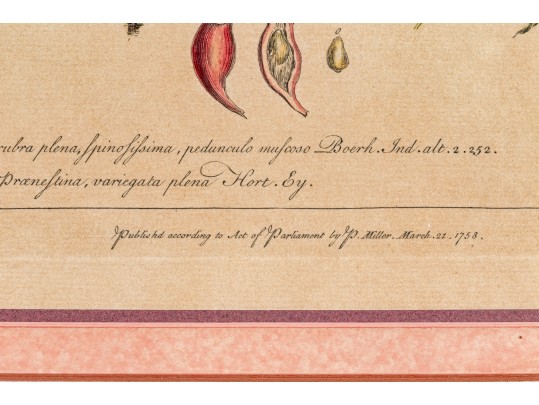 rubra plena, ſpinoſiſsima, pedunculo muſcoso Boerh. Ind. alt. 2. 252.
Præneſtina, variegata plena Hort. Ey.
Publish'd according to Act of Parliament by P. Miller. March. 21. 1758.